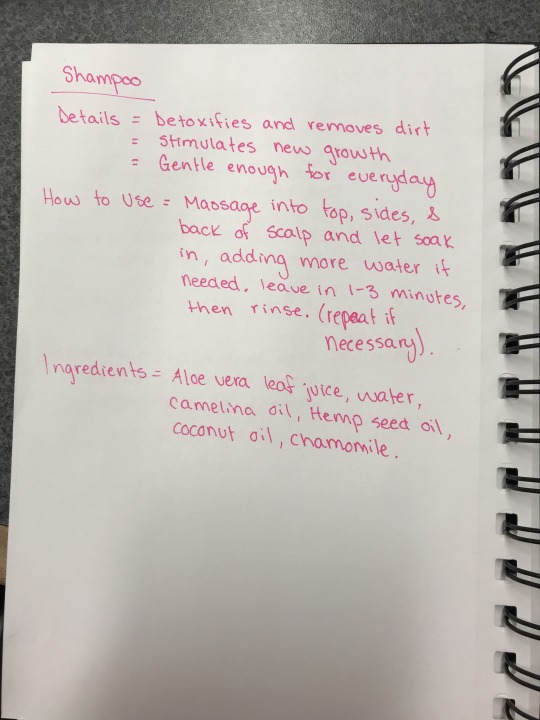 Shampoo
Details = Detoxifies and removes dirt
= Stimulates new growth
= Gentle enough for everyday
How to Use = Massage into top, sides, &
back of scalp and let soak
in, adding more water if
needed. leave in 1-3 minutes,
then rinse. (repeat if
necessary).
Ingredients = Aloe vera leaf juice, water,
camelina oil, Hemp seed oil,
coconut oil, chamomile.